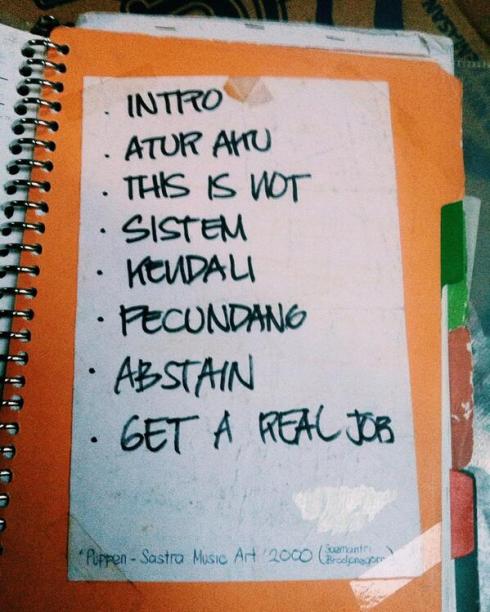 · INTRO
· ATUR AKU
· THIS IS NOT
· SISTEM
· KENDALI
· PECUNDANG
· ABSTAIN
· GET A REAL JOB
"Puppen - Sastra Music Art '2000 (Soemantri
Brodjonegoro)